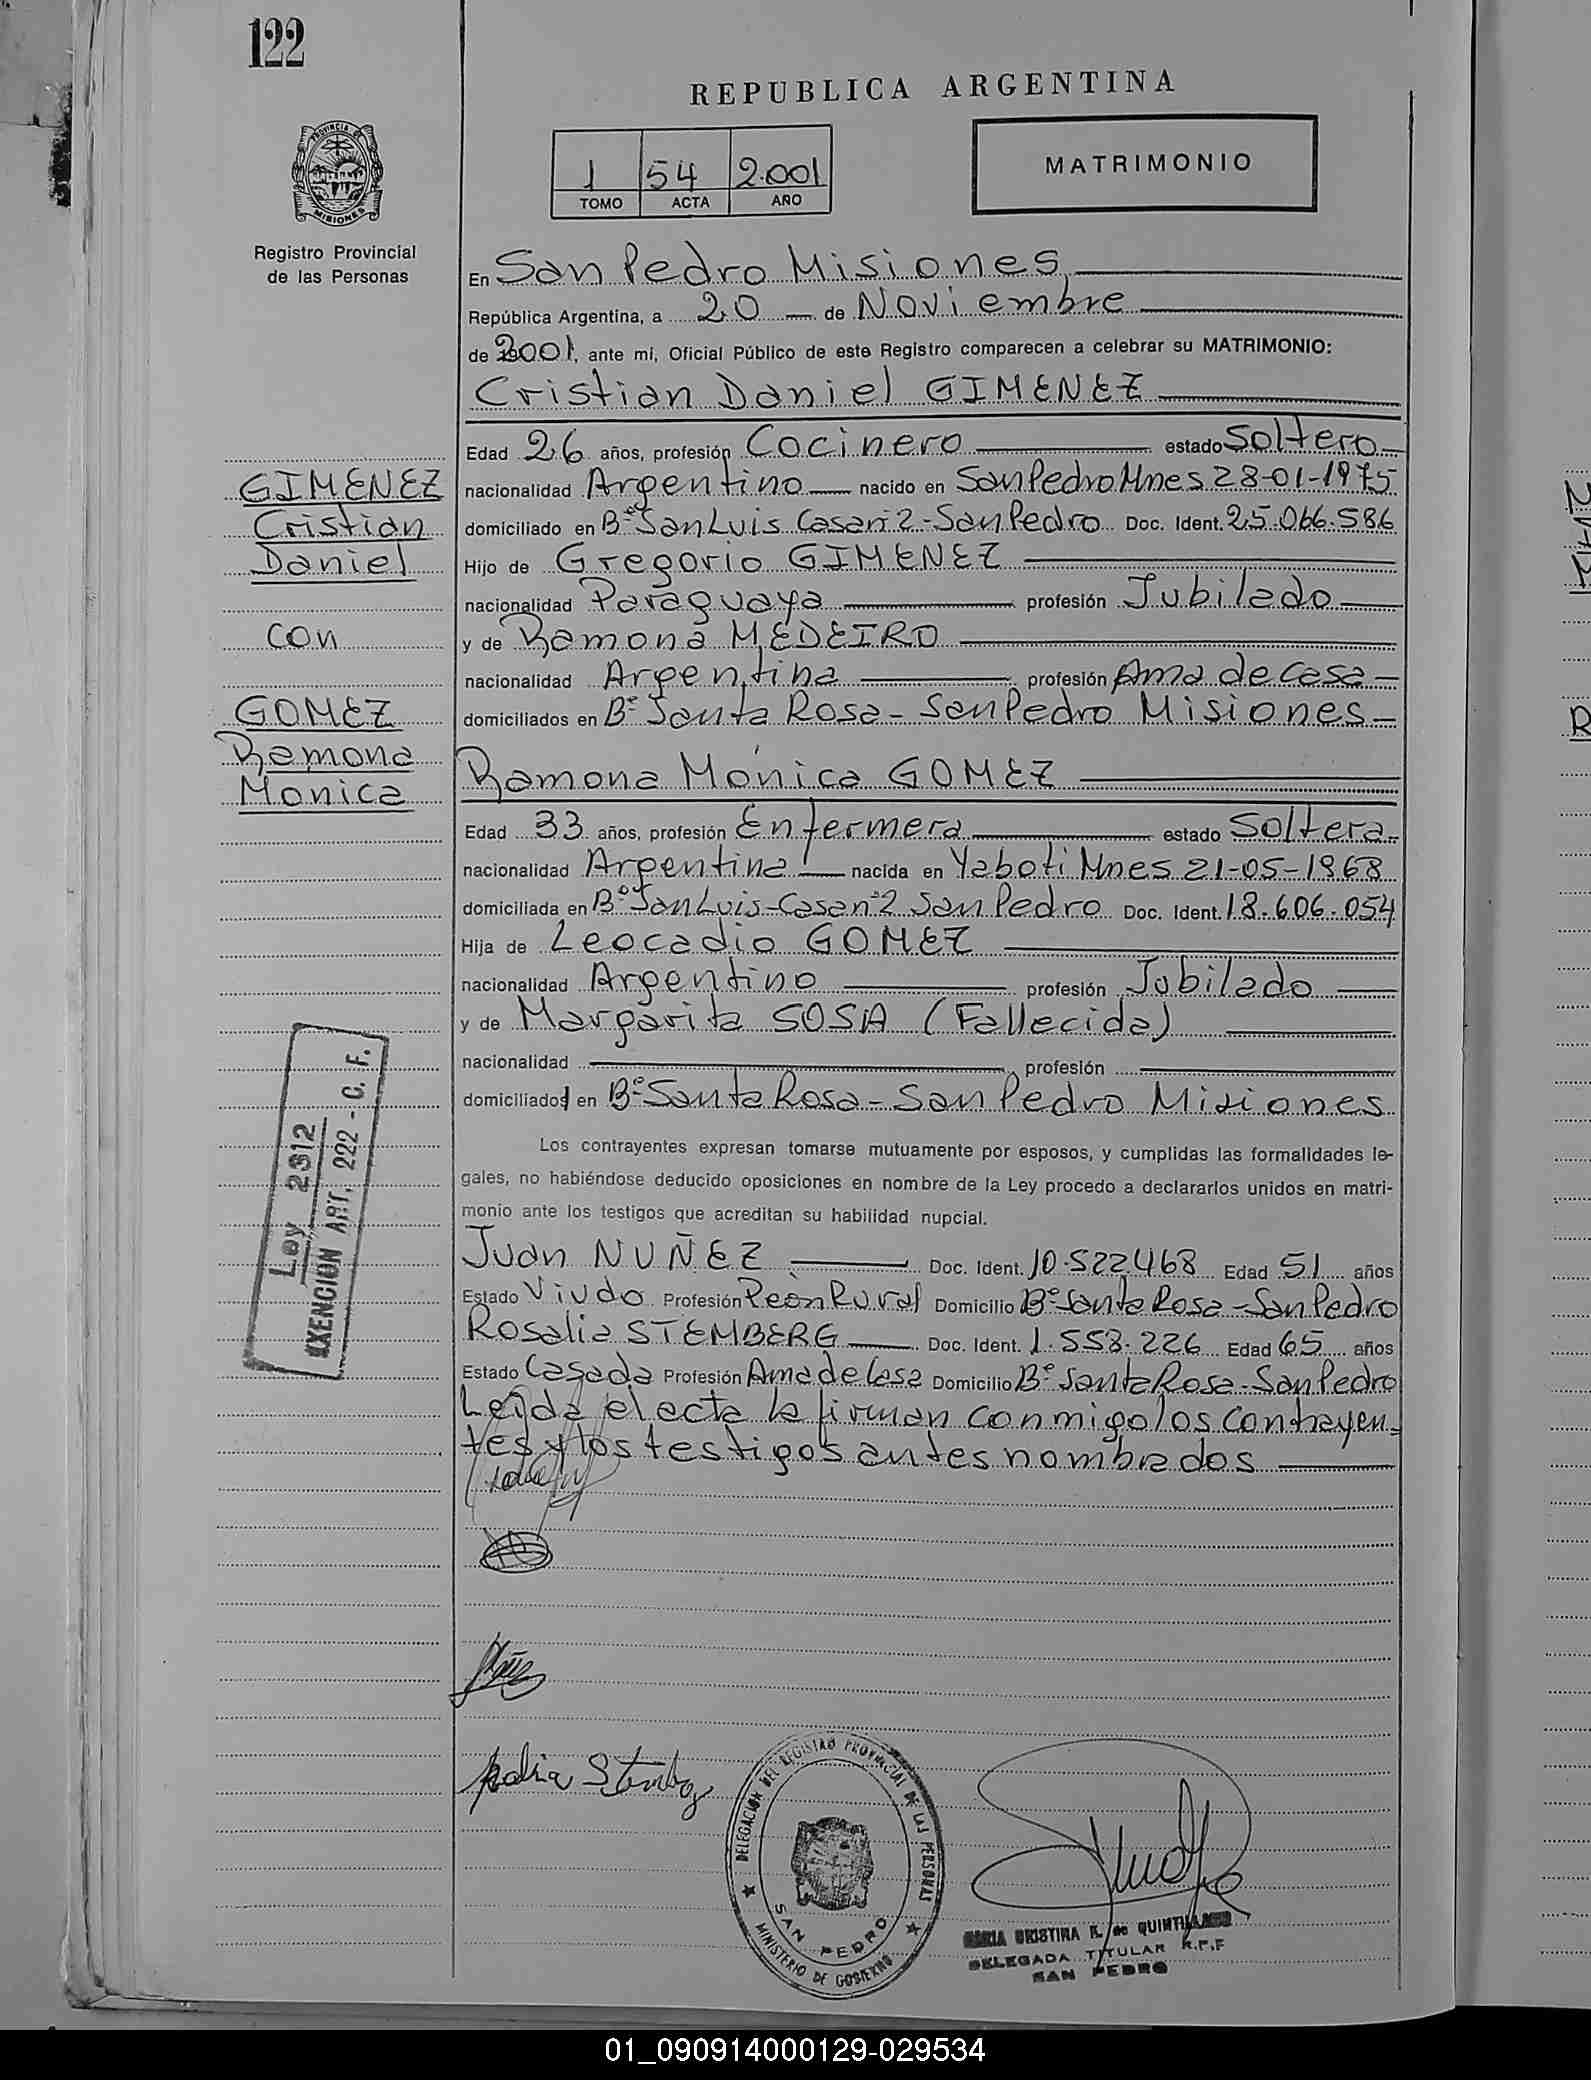 122
REPUBLICA ARGENTINA
PROVINCIA DE
MISIONES
Registro Provincial
de las Personas
1 54 2.001
TOMO ACTA AÑO
MATRIMONIO
En San Pedro Misiones
República Argentina, a 20 — de Noviembre
de 2001, ante mí, Oficial Público de este Registro comparecen a celebrar su MATRIMONIO:
Cristian Daniel GIMENEZ
Edad 26 años, profesión Cocinero estado Soltero
nacionalidad Argentino nacido en San Pedro Mnes 28-01-1975
domiciliado en Bº San Luis Casa nº 2 - San Pedro Doc. Ident. 25.066.586
Hijo de Gregorio GIMENEZ
nacionalidad Paraguaya profesión Jubilado
y de Ramona MEDEIRO
nacionalidad Argentina profesión Ama de Casa
domiciliados en Bº Santa Rosa - San Pedro Misiones
Ramona Mónica GOMEZ
Edad 33 años, profesión Enfermera estado Soltera
nacionalidad Argentina nacida en Yaboti Mnes 21-05-1968
domiciliada en Bº San Luis - Casa nº 2 San Pedro Doc. Ident. 18.606.054
Hija de Leocadio GOMEZ
nacionalidad Argentino profesión Jubilado
y de Margarita SOSA (Fallecida)
nacionalidad profesión
domiciliado en Bº Santa Rosa - San Pedro Misiones
Los contrayentes expresan tomarse mutuamente por esposos, y cumplidas las formalidades le-
gales, no habiéndose deducido oposiciones en nombre de la Ley procedo a declararlos unidos en matri-
monio ante los testigos que acreditan su habilidad nupcial.
Juan NUÑEZ Doc. Ident. 10.522468 Edad 51 años
Estado Viudo Profesión Peón Rural Domicilio Bº Santa Rosa - San Pedro
Rosalia STEMBERG Doc. Ident. 1.558.226 Edad 65 años
Estado Casada Profesión Ama de Casa Domicilio Bº Santa Rosa - San Pedro
Leída el acta la firman conmigo los contrayen=
tes y los testigos antes nombrados
GIMENEZ
Cristian
Daniel
con
GOMEZ
Ramona
Monica
Ley 2312
EXENCION ART. 222 - C. F.
DELEGACION DEL REGISTRO PROVINCIAL DE LAS PERSONAS
SAN PEDRO
MINISTERIO DE GOBIERNO
MARIA CRISTINA R. de
DELEGADA TITULAR R.P.F
SAN PEDRO
01_090914000129-029534